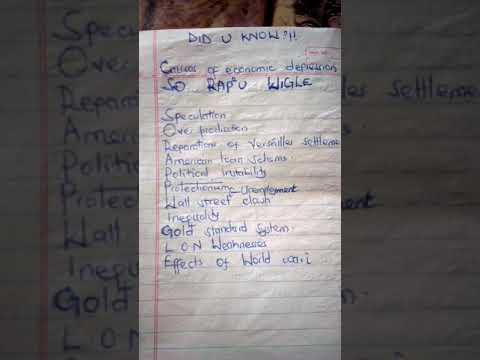 DID U KNOW?!!
Causes of economic depression
SO RAP²U WIGLE
Speculation
Over production
Reparations of Versailles settleme
American loan schems
Political instability
Protectionism Unemployment
Wall street clash
Inequality
Gold standard system.
L O N Weaknesses
Effects of World war i